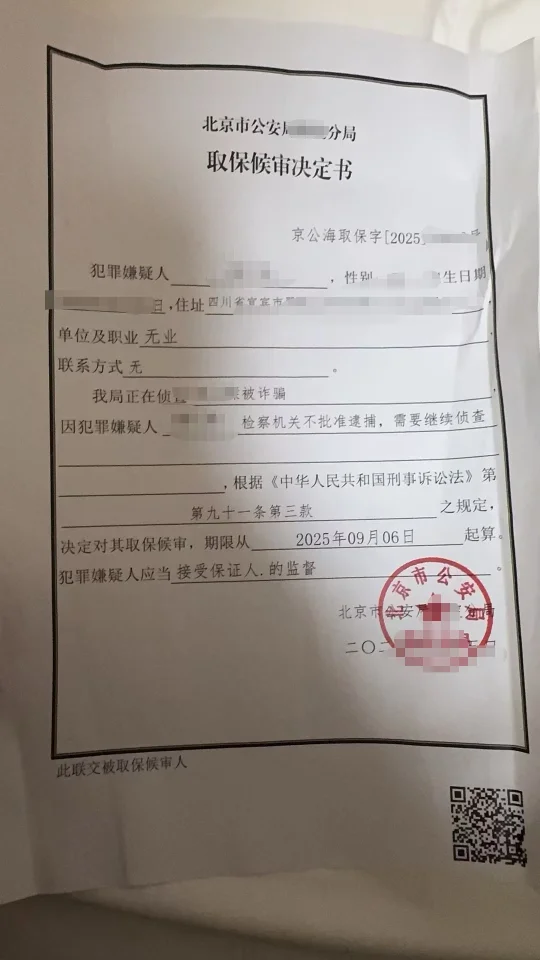 北京市公安局 分局
取保候审决定书
京公海取保字[2025] 号
犯罪嫌疑人 ,性别 生日期
日,住址 四川省宜宾市 ,
单位及职业 无业
联系方式 无 。
我局正在侦 被诈骗 ,
因犯罪嫌疑人 检察机关不批准逮捕,需要继续侦查
,根据《中华人民共和国刑事诉讼法》第
第九十一条第三款 之规定,
决定对其取保候审,期限从 2025年09月06日 起算。
犯罪嫌疑人应当 接受保证人.的监督 。
北京市公安 分局
二〇二 日
北京市公安局
此联交被取保候审人